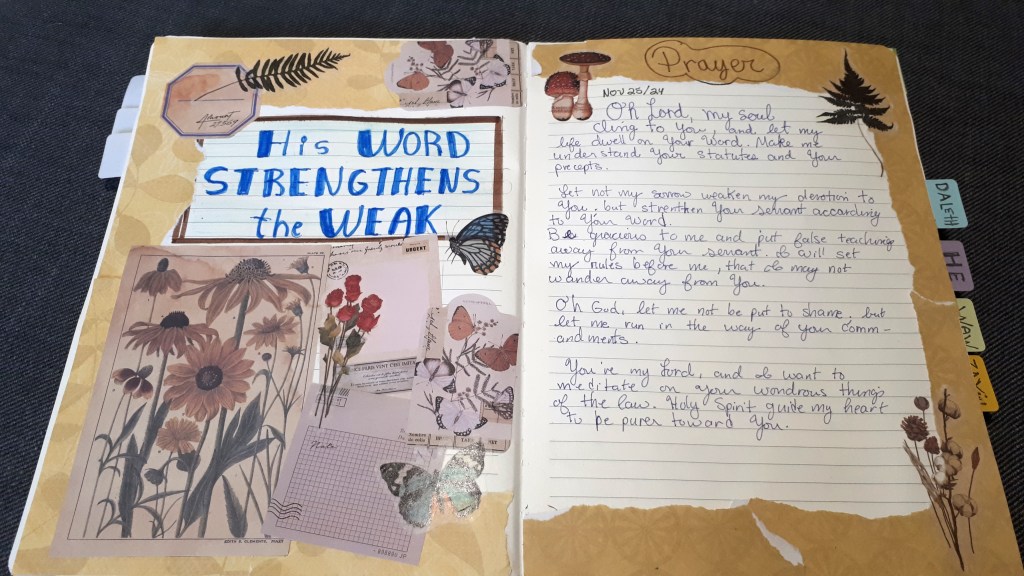 His WORD
STRENGTHENS
the WEAK
URGENT
Note
Prayer
NOV 25/24
Oh Lord, my soul
cling to You, and let my
life dwell on Your Word. Make me
understand Your statutes and Your
precepts.
Let not my sorrow weaken my devotion to
You, but strengthen Your servant according
to Your Word.
Be gracious to me and put false teachings
away from Your servant. I will set
my rules before me, that I may not
wander away from You.
Oh God, let me not be put to shame, but
let me run in the way of your comm-
andments.
You're my Lord, and I want to
meditate on your wondrous things
of the law. Holy Spirit guide my heart
to be purer toward You.
DALETH
HE
WAW